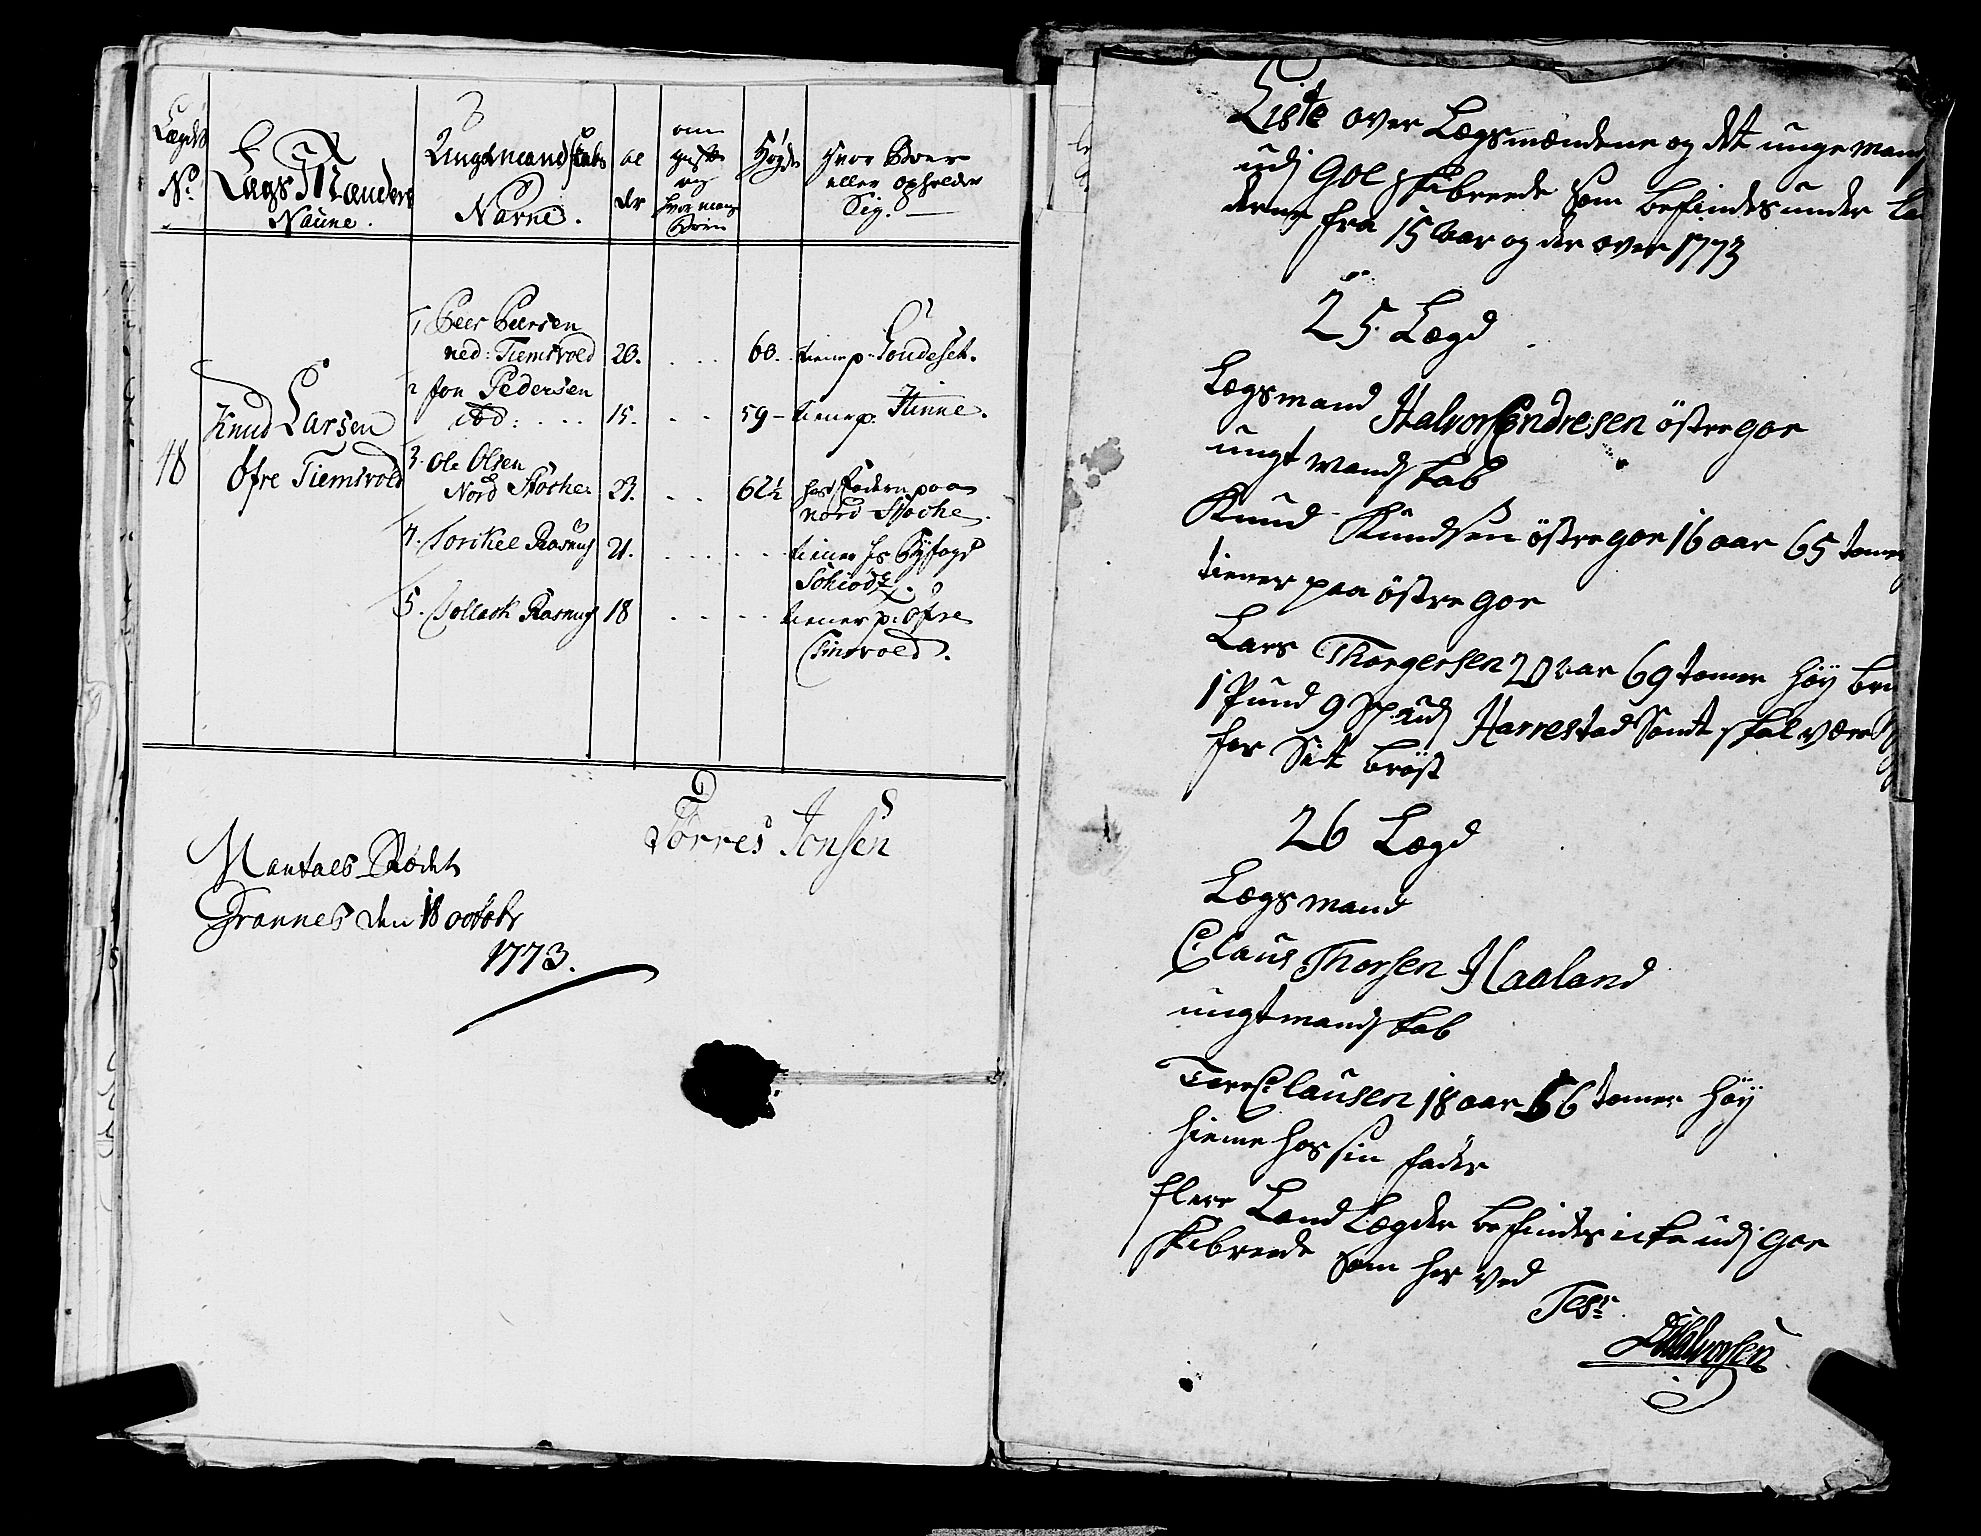 Lægds
No.
Lægs Mændens
Naune.
Ungemandskabs
Navne.
al
der
om
gifte
og
hvor mange
Børn
Høyde
Hvor Boer
eller opholder
Sig.
48
Knud Larsen
Øfre Tiemsvold
1 Peer Peersen
ned: Tiemsvold 20. . . . 60. tiener p. Sondeset.
2 Jon Pedersen
ibd: . . . 15. . . 59 – tiener p. Hinne.
3. Ole Olsen
Nord Støche. 23. . . 62½ hos Faderen paa
nord Støche.
4. Torckel Rasmus 21. . . . . . tiener hs Byfogd
Schiødtz.
5. Tollach Rasmus 18 . . . . tiener p: Øfre
Timsvold.
Torres Jonsen
Mantals Rødet
Grannes den 18 octobr
1773.
Liste over Lægsmændene og det unge mand
udj Gol skibrede som befindes under La
derne fra 15 aar og der over 1773
25. Lægd
Lægsmand Halvor Endresen østre goe
ungt mandskab
Knud Knudsen østre goe 16 aar 65 tomer
tiener paa østre goe
Lars Thorgersen 20 aar 69 tomer høy bru
1 Pund 9 Sp. udj Harrestad Samt skal være
for Sit brøst
26 Lægd
Lægsmand
Claus Thorsen Haaland
ungt mandskab
Tore Clausen 18 aar 56 tomer høy
hieme hos sin fader
flere Land Lægder befindes icke udj Goe
skibrede som her ved
Test:
Halvorsen